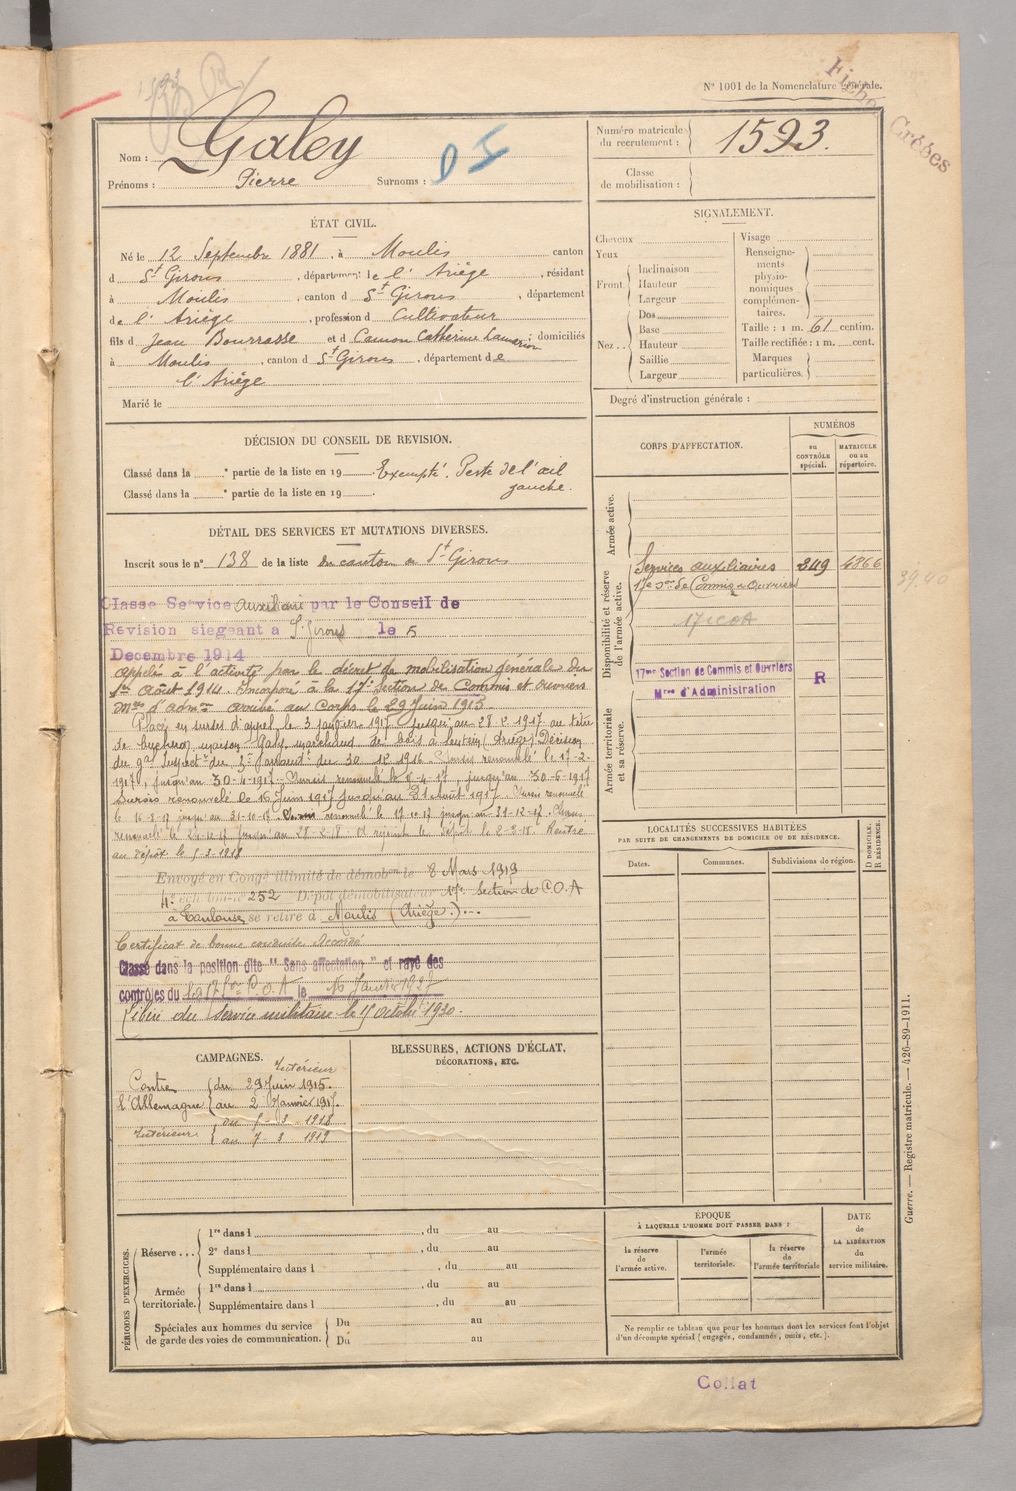 N° 1001 de la Nomenclature générale.
Nom : Galey
Prénoms : Pierre Surnoms :
Numéro matricule du recrutement : 1593.
Classe de mobilisation :
ÉTAT CIVIL.
Né le 12 Septembre 1881, à Moulis canton
d St Girons, département de l'Ariège, résidant
à Moulis, canton d St Girons, département
de l'Ariège, profession d Cultivateur
fils d Jean Bourrasse et d Camon Catherine domiciliés
à Moulis, canton d St Girons, département de
l'Ariège
Marié le
SIGNALEMENT.
Cheveux
Yeux
Front. Inclinaison
Hauteur
Largeur
Nez .. Dos
Base
Hauteur
Saillie
Largeur
Visage
Renseignements physionomiques complémentaires.
Taille : 1 m. 61 centim.
Taille rectifiée : 1 m. cent.
Marques particulières.
Degré d'instruction générale :
DÉCISION DU CONSEIL DE REVISION.
Classé dans la e partie de la liste en 19 Exempté. Perte de l'œil
Classé dans la e partie de la liste en 19 . gauche.
DÉTAIL DES SERVICES ET MUTATIONS DIVERSES.
Inscrit sous le n° 138 de la liste du canton de St Girons
Classé Service auxiliaire par le Conseil de
Revision siegeant a St Girons le 5
Decembre 1914
appelé à l'activité par le décret de mobilisation générale du
1er Août 1914. Incorporé à la 17e Section de Commis et Ouvriers
Mres d'admon arrivé au Corps le 29 Juin 1915.
Placé en sursis d'appel le 3 janvier 1917 jusqu'au 28.2.1917 au titre
de bucheron, maison Galy, marchand de bois à Sentein (Ariège) Décision
du 30.12.1916. Sursis renouvelé le 17-2-
1917, jusqu'au 30-4-1917. Sursis renouvelé le -4-17, jusqu'au 30-6-1917
Sursis renouvelé le 16 Juin 1917 jusqu'au 31 août 1917. Sursis renouvelé
le 16-8-17 jusqu'au 31-10-17. Sursis renouvelé le 17-10-17 jusqu'au 31-12-17. Sursis
renouvelé le 24-12-17 jusqu'au 28-2-18. Rentré
au dépôt le 1-3-1918
Envoyé en Congé illimité de démobon le 8 Mars 1919
4e échelon n° 252 Dépôt démobilisateur 17e Section de C.O.A
à Toulouse se retire à Moulis (Ariège)
Certificat de bonne conduite Accordé
Classé dans la position dite "Sans affectation" et rayé des
contrôles du le 16 Janvier 1927
Libéré du Service militaire le Octobre 1930.
CORPS D'AFFECTATION.
NUMÉROS
au CONTRÔLE spécial.
MATRICULE ou au répertoire.
Armée active.
Disponibilité et réserve de l'armée active.
Services auxiliaires 349 4866
17e Son de Commis & Ouvriers
17e COA
17me Section de Commis et Ouvriers
Mres d'Administration R
Armée territoriale et sa réserve.
LOCALITÉS SUCCESSIVES HABITÉES
PAR SUITE DE CHANGEMENTS DE DOMICILE OU DE RÉSIDENCE.
D DOMICILE.
R RÉSIDENCE.
Dates. Communes. Subdivisions de région.
CAMPAGNES.
Intérieur
Contre du 29 Juin 1915.
l'Allemagne au 2 Janvier 1917.
Intérieur du 1-3-1918
au 7-3 1919
BLESSURES, ACTIONS D'ÉCLAT,
DÉCORATIONS, ETC.
PÉRIODES D'EXERCICES.
Réserve... 1re dans l , du au
2e dans l , du au
Supplémentaire dans l , du au
Armée territoriale. 1re dans l , du au
Supplémentaire dans l , du au
Spéciales aux hommes du service de garde des voies de communication. Du au
Du au
ÉPOQUE
À LAQUELLE L'HOMME DOIT PASSER DANS :
la réserve de l'armée active.
l'armée territoriale.
la réserve de l'armée territoriale
DATE de LA LIBÉRATION du service militaire.
Ne remplir ce tableau que pour les hommes dont les services font l'objet
d'un décompte spécial (engagés, condamnés, omis, etc.).
Guerre. — Registre matricule. — 426-89-1911.
Collat